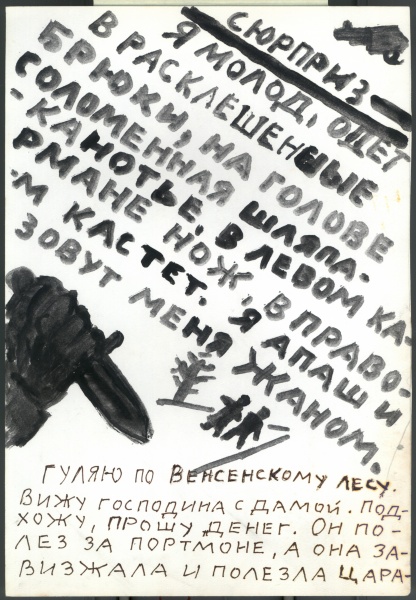 СЮРПРИЗ
Я МОЛОД, ОДЕТ
В РАСКЛЕШЕННЫЕ
БРЮКИ, НА ГОЛОВЕ
СОЛОМЕННАЯ ШЛЯПА-
-КАНОТЬЕ, В ЛЕВОМ КА-
РМАНЕ НОЖ, В ПРАВО-
М КАСТЕТ. Я АПАШ И
ЗОВУТ МЕНЯ ЖАНОМ.
ГУЛЯЮ ПО ВЕНСЕНСКОМУ ЛЕСУ.
ВИЖУ ГОСПОДИНА С ДАМОЙ. ПОД-
ХОЖУ, ПРОШУ ДЕНЕГ. ОН ПО-
ЛЕЗ ЗА ПОРТМОНЕ, А ОНА ЗА-
ВИЗЖАЛА И ПОЛЕЗЛА ЦАРА-